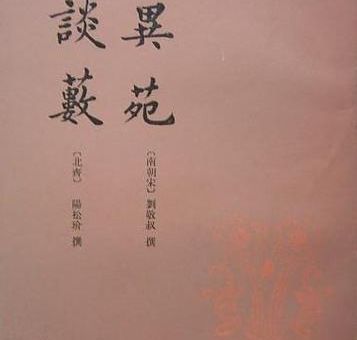 異苑
〔南朝宋〕 劉敬叔 撰
談藪
〔北齊〕 陽松玠 撰